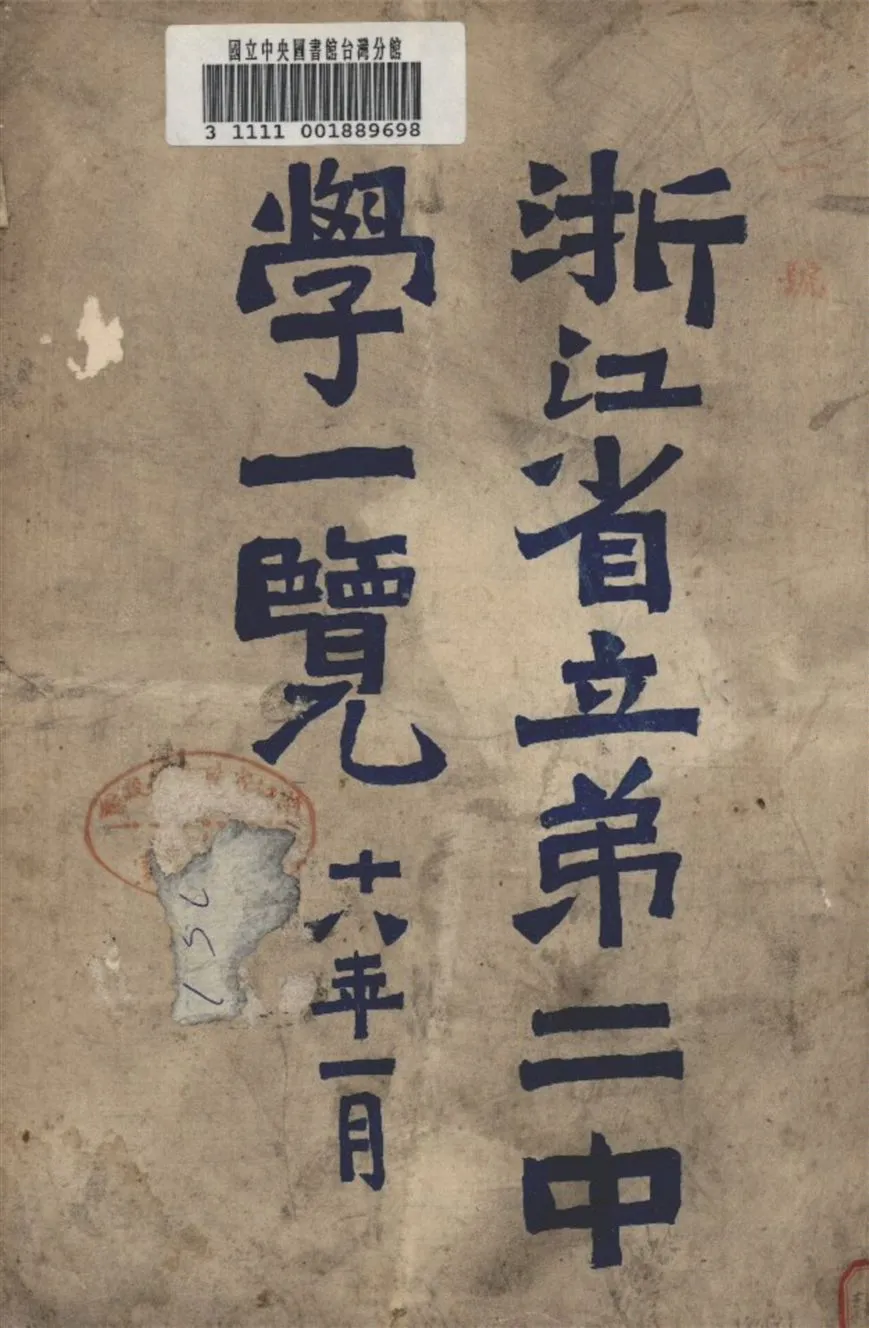 國立中央圖書館台灣分館
3 1111 001889698
浙江省立弟二中
學一覽
十六年一月
號
156